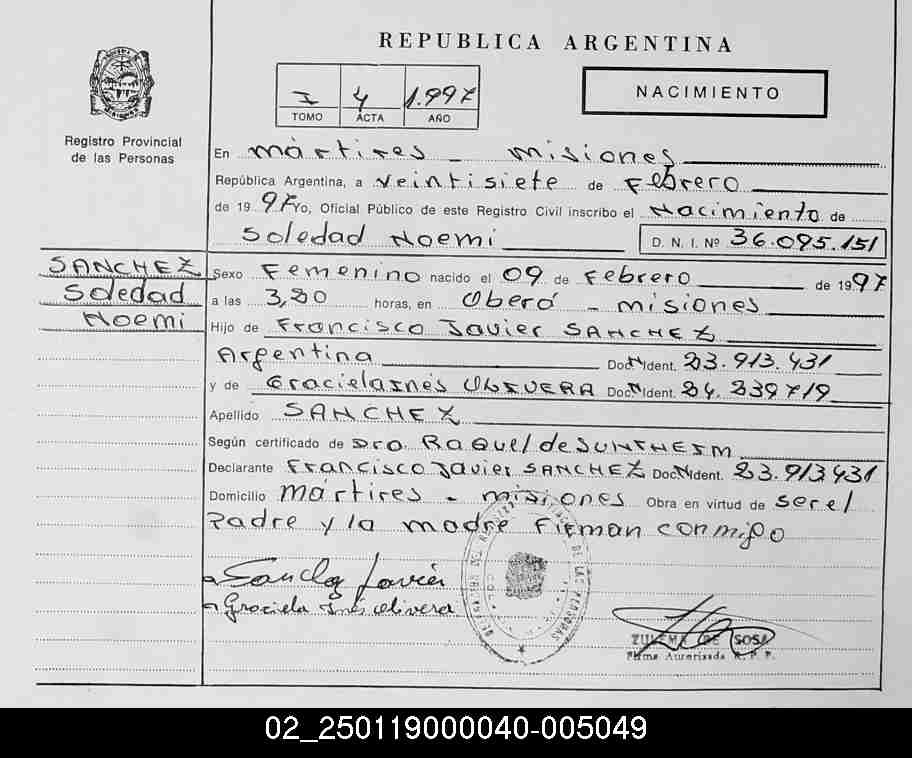 REPUBLICA ARGENTINA
NACIMIENTO
I 4 1.997
TOMO ACTA AÑO
Registro Provincial
de las Personas
En Mártires - Misiones
República Argentina, a veintisiete de Febrero
de 1997 Yo, Oficial Público de este Registro Civil inscribo el Nacimiento de
Soledad Noemi D. N. I. Nº 36.095.151
SANCHEZ
Soledad
Noemi
Sexo Femenino nacido el 09 de Febrero de 1997
a las horas, en Oberá - Misiones
Hijo de Francisco Javier SANCHEZ
Argentina Doc. Ident. 23.913.431
y de Graciela Inés OLIVERA Doc. Ident. 24.239719
Apellido SANCHEZ
Según certificado de Dra. Raquel de
Declarante Francisco Javier SANCHEZ Doc. Ident. 23.913431
Domicilio Mártires - Misiones Obra en virtud de ser el
Padre y la madre Firman conmigo
Sanchez Javier
Graciela Inés Olivera
ZULEMA DE SOSA
Firma Autorizada R. P. P.
02_250119000040-005049